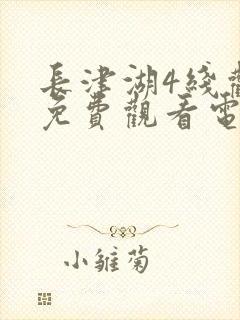 長津湖4綫
免費觀看電
小雛菊